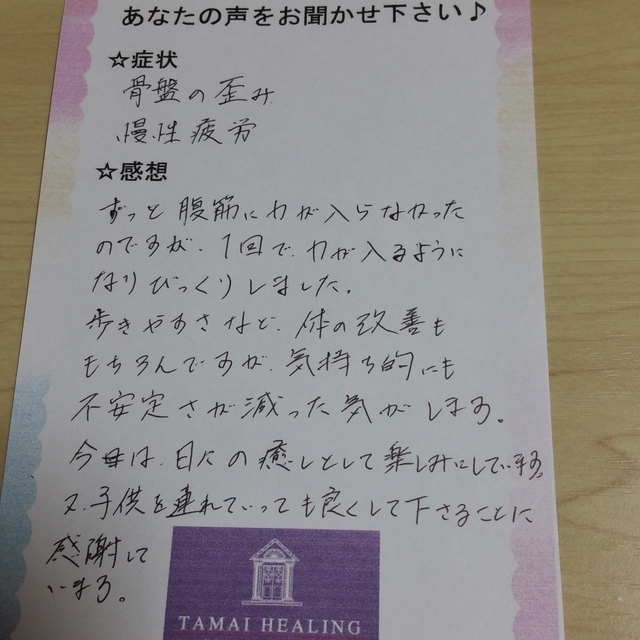 あなたの声をお聞かせ下さい♪
☆症状
骨盤の歪み
慢性疲労
☆感想
ずっと腹筋に力が入らなかった
のですが、1回で、力が入るように
なりびっくりしました。
歩きやすさなど、体の改善も
もちろんですが、気持ち的にも
不安定さが減った気がします。
今日は、日々の癒しとして楽しみにしています
又、子供を連れていっても良くして下さることに
感謝して
います。
TAMAI HEALING